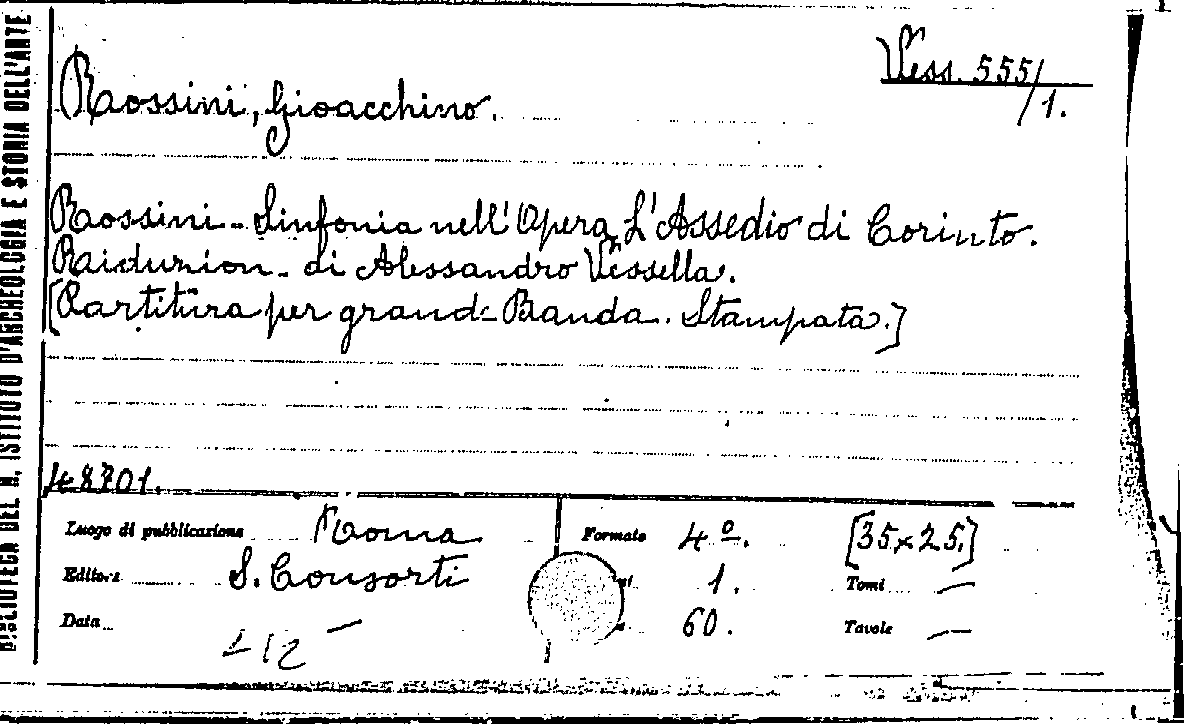 BIBLIOTECA DEL R. ISTITUTO D'ARCHEOLOGIA E STORIA DELL'ARTE
Vess. 555/
/1.
Rossini, Gioacchino.
Rossini - Sinfonia nell'Opera L'Assedio di Corinto.
Riduzion. di Alessandro Vessella.
[Partitura per grand= Banda. Stampata.]
48701.
Luogo di pubblicazione Roma Formato 4º. [35x25.]
Editore S. Consorti 1. Tomi —
Data — 60. Tavole —